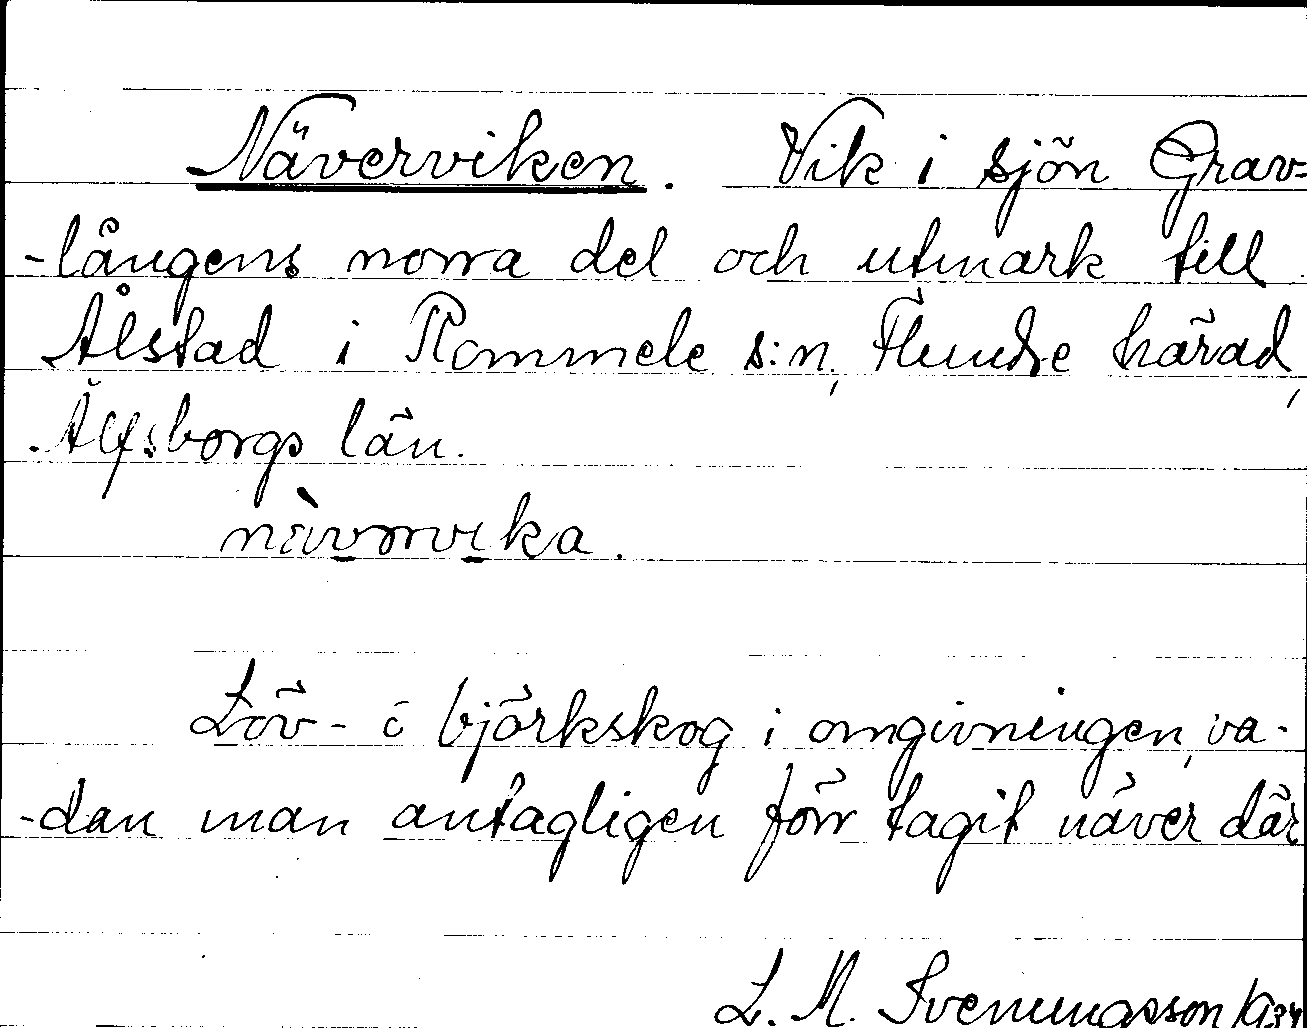 Näverviken. Vik i sjön Grav-
-långens norra del och utmark till
Ålstad i Rommele s:n, Flundre härad,
Älfsborgs län.
nävərvika.
Löv- o björkskog i omgivningen, va-
-dan man antagligen förr tagit näver där
L. M. Svenungsson 1934